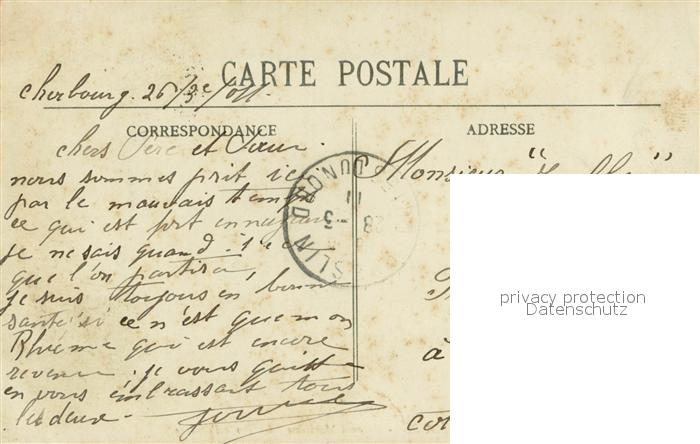 CARTE POSTALE
Cherbourg. 26/3e/011.
CORRESPONDANCE
ADRESSE
chers Père et Sœur.
nous sommes prit ici
par le mauvais temps
ce qui est fort ennuyant
je ne sais quand. s'est
que l'on partira,
je suis toujours en bonne
santé si ce n'est que mon
Rhume qui est encore
revenu. je vous quitte
en vous embrassant tous
les deux.
Monsieur
à
DUN
privacy protection
Datenschutz